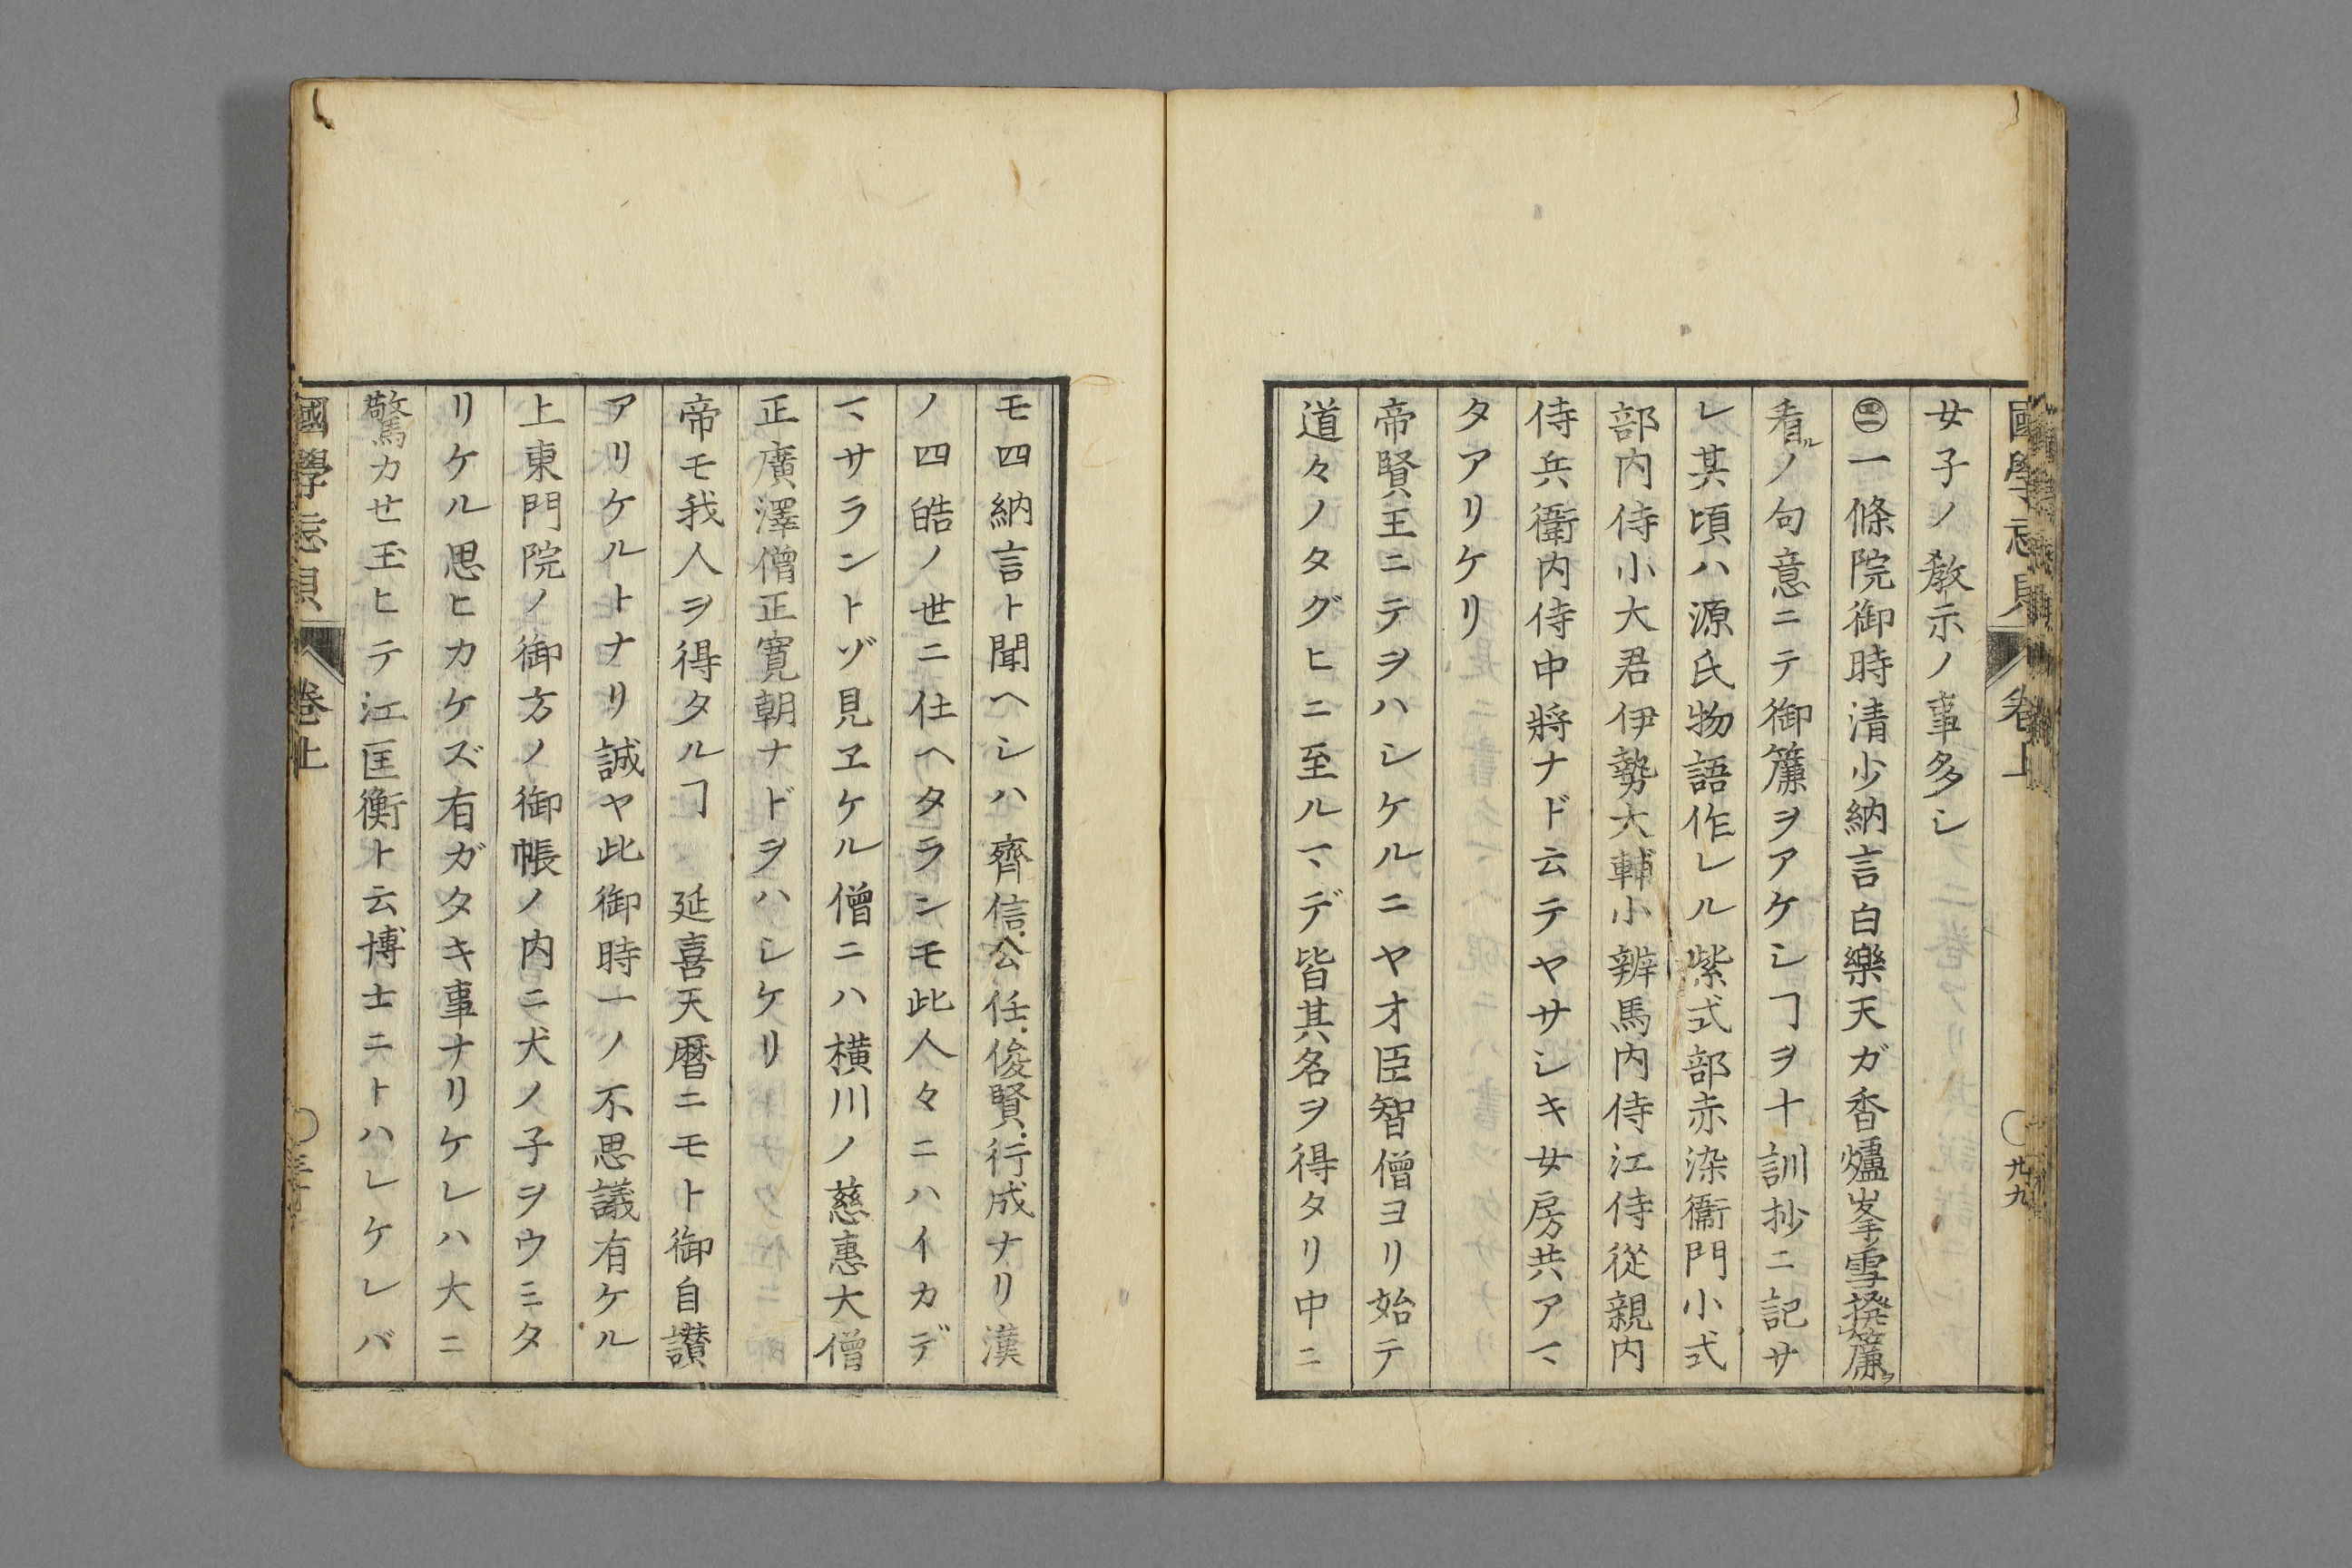 國學忘貝
卷上
○廿九
女子ノ敎示ノ事多シ
㊁一條院御時清少納言白樂天ガ香爐峯雪撥簾ヲ
看ルノ句意ニテ御簾ヲアケシヿヲ十訓抄ニ記サ
レ其頃ハ源氏物語作レル紫式部赤染衞門小式
部内侍小大君伊勢大輔小辨馬内侍江侍從親内
侍兵衞内侍中將ナド云テヤサシキ女房共アマ
タアリケリ
帝賢王ニテヲハシケルニヤ才臣智僧ヨリ始テ
道々ノタグヒニ至ルマデ皆其名ヲ得タリ中ニ
モ四納言ト聞ヘシハ齊信公任俊賢行成ナリ漢
ノ四皓ノ世ニ仕ヘタランモ此人々ニハイカデ
マサラントゾ見ヱケル僧ニハ横川ノ慈惠大僧
正廣澤僧正寛朝ナドヲハシケリ
帝モ我人ヲ得タルヿ　延喜天曆ニモト御自讃
アリケルトナリ誠ヤ此御時一ノ不思議有ケル
上東門院ノ御方ノ御帳ノ内ニ犬ノ子ヲウミタ
リケル思ヒカケズ有ガタキ事ナリケレハ大ニ
驚カセ玉ヒテ江匡衡ト云博士ニトハレケレバ
國學忘貝
卷上